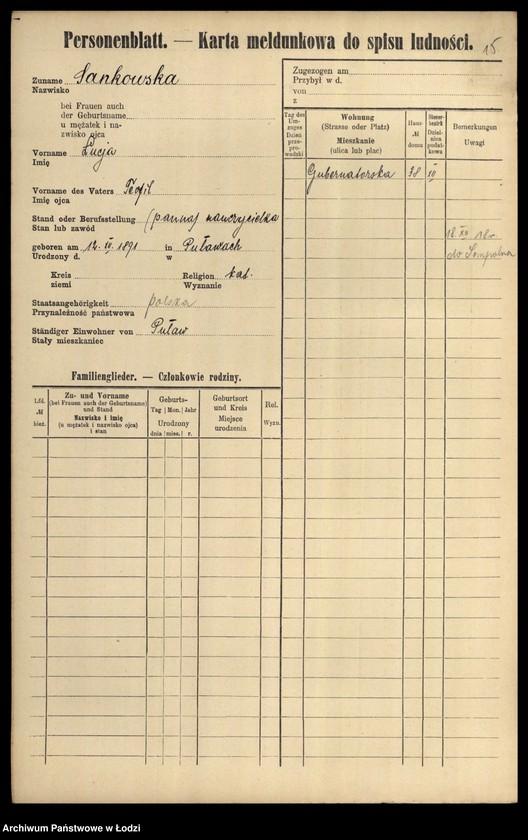 Personenblatt. — Karta meldunkowa do spisu ludności. 15
Zuname Sankowska
Nazwisko
bei Frauen auch
der Geburtsname
u mężatek i na-
zwisko ojca
Vorname Łucja
Imię
Vorname des Vaters Teofil
Imię ojca
Stand oder Berufsstellung (panna) nauczycielka
Stan lub zawód
geboren am 12. IV. 1891 in Puławach
Urodzony d. w
Kreis Religion kat.
ziemi Wyznanie
Staatsangehörigkeit polska
Przynależność państwowa
Ständiger Einwohner von Puław
Stały mieszkaniec
Familienglieder. — Członkowie rodziny.
Lfd. № bież.
Zu- und Vorname
(bei Frauen auch der Geburtsname)
und Stand
Nazwisko i imię
(u mężatek i nazwisko ojca)
i stan
Geburts-
Tag Mon. Jahr
Urodzony
dnia mies. r.
Geburtsort
und Kreis
Miejsce
urodzenia
Rel.
Wyzn.
Zugezogen am
Przybył w d.
von
z
Tag des
Um-
zuges
Dzień
prze-
prowadzki
Wohnung
(Strasse oder Platz)
Mieszkanie
(ulica lub plac)
Haus-
№
domu
Steuer-
bezirk
Dziel-
nica
podat-
kowa
Bemerkungen
Uwagi
Gubernatorska 38 IV
18. XII
do Sompolna
Archiwum Państwowe w Łodzi